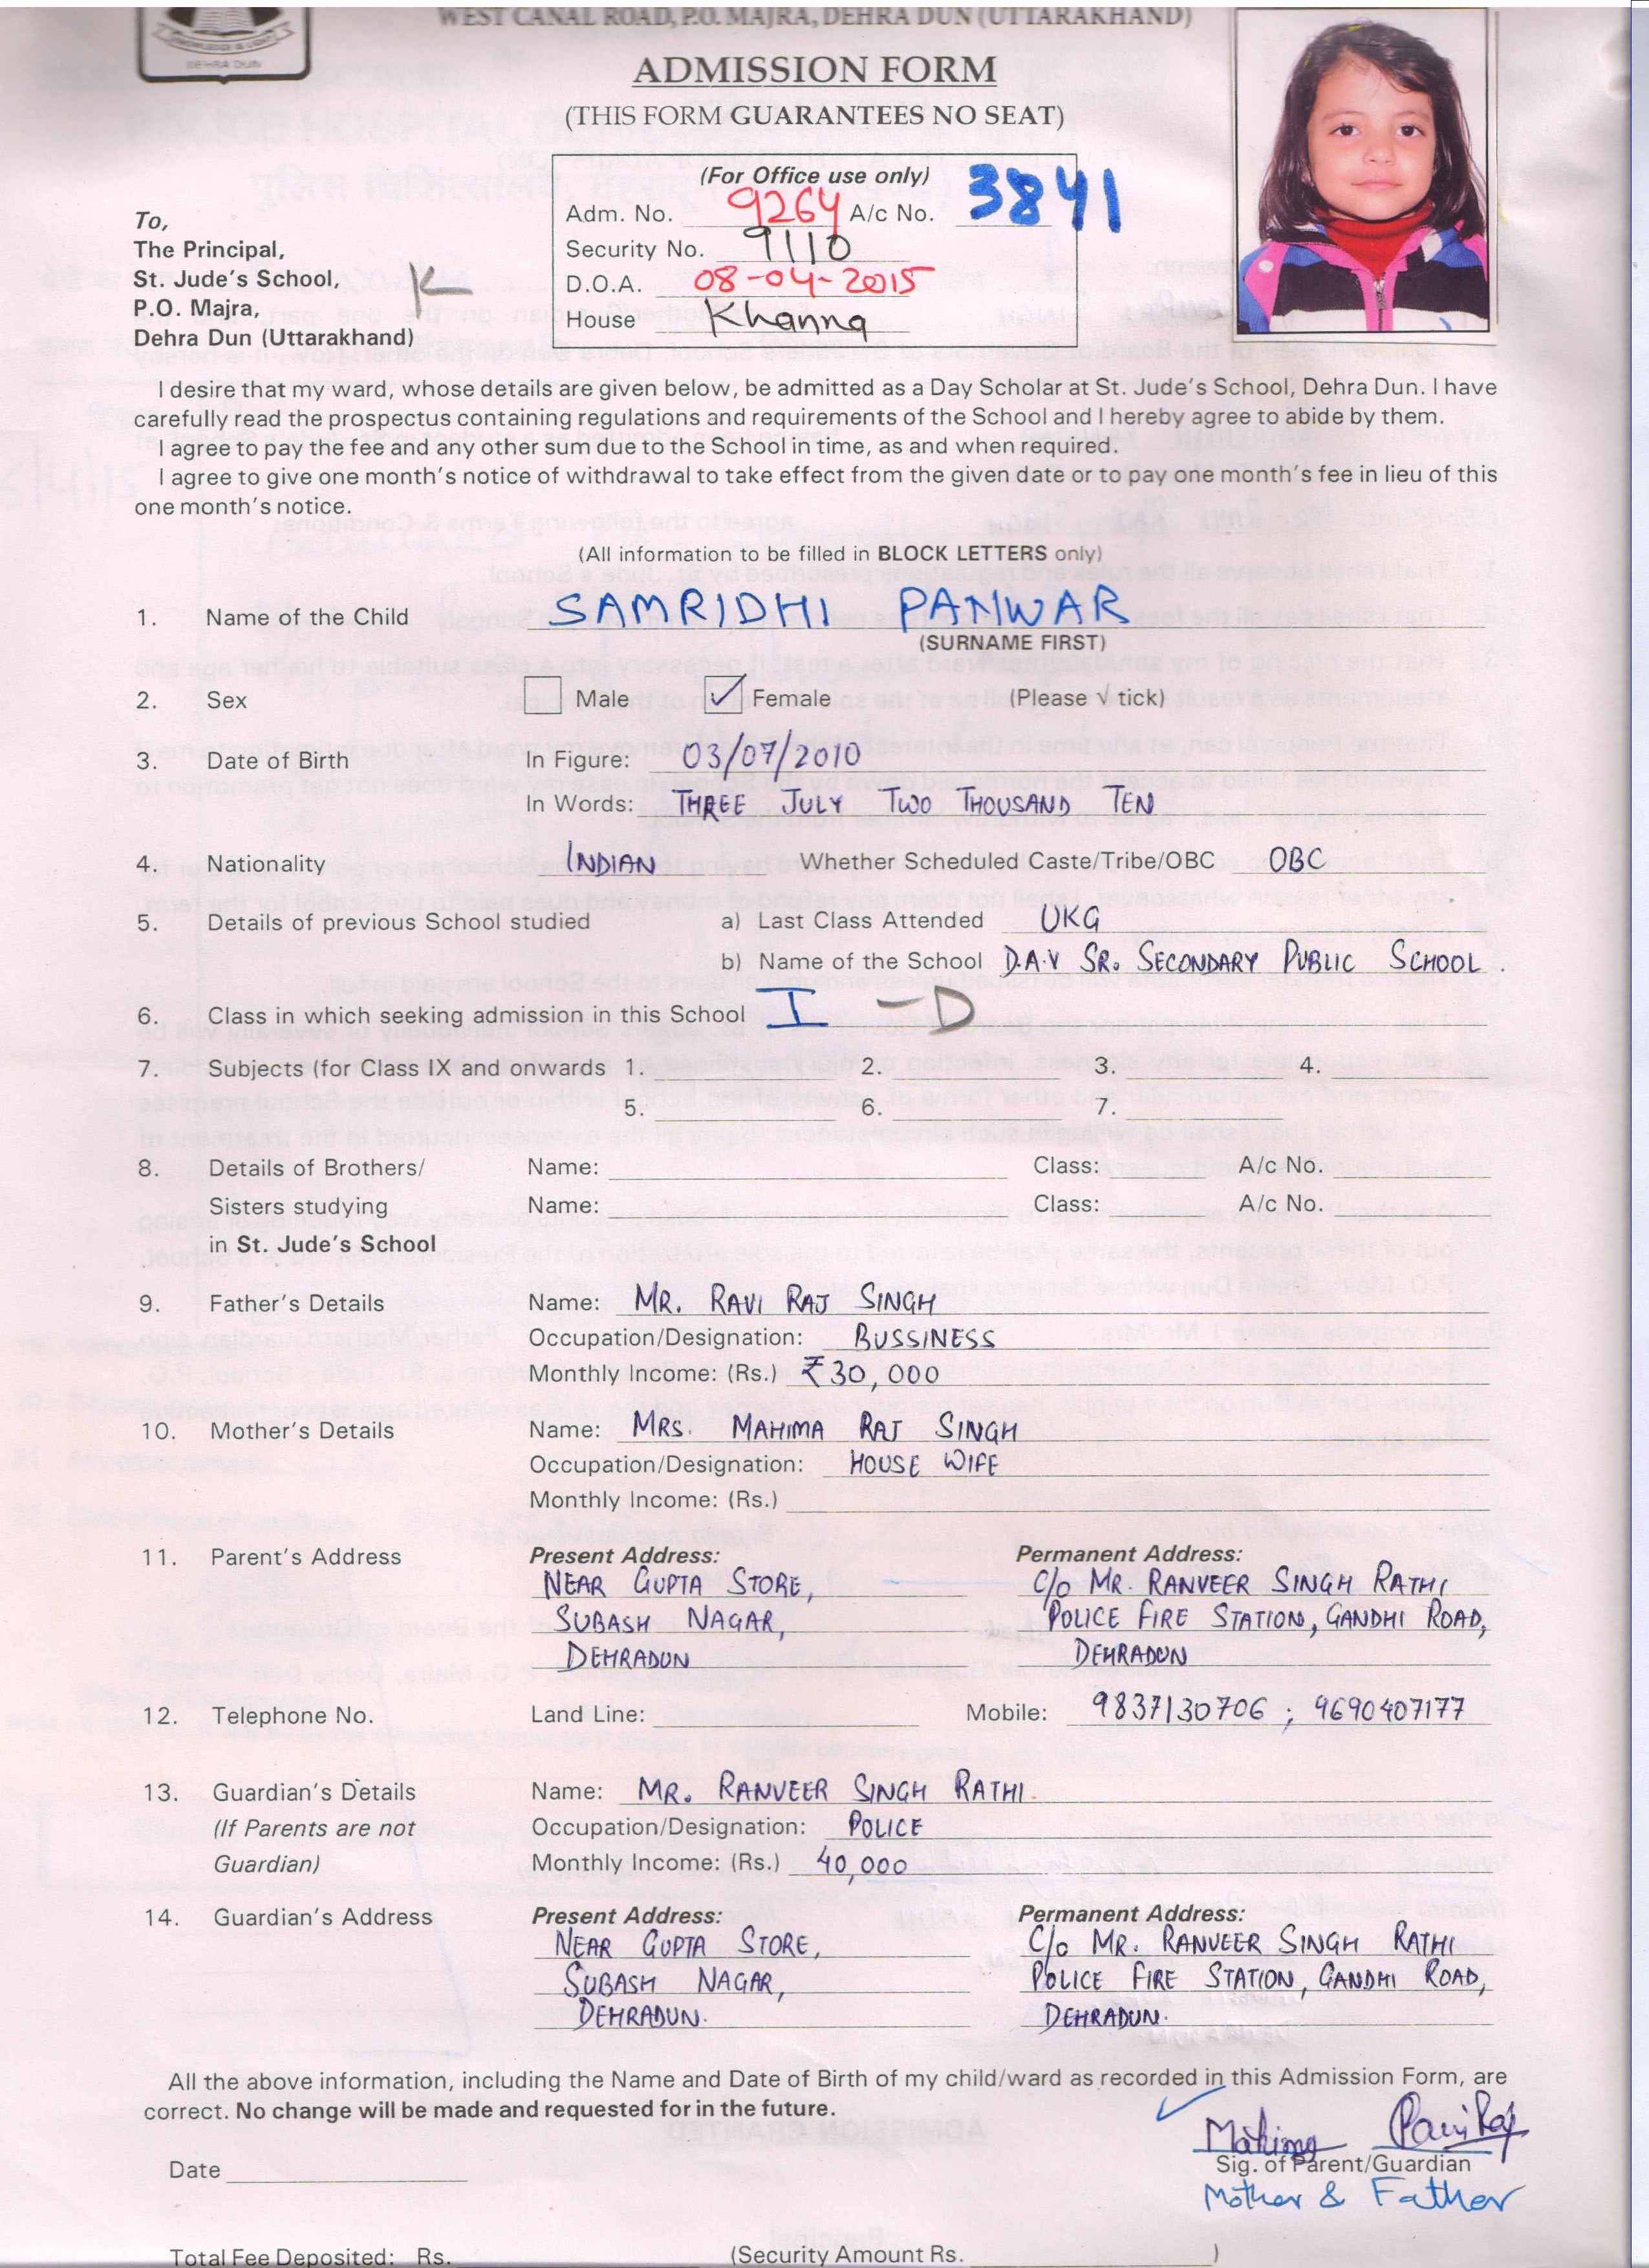 WEST CANAL ROAD, P.O. MAJRA, DEHRA DUN (UTTARAKHAND)
DEHRA DUN
ADMISSION FORM
(THIS FORM GUARANTEES NO SEAT)
(For Office use only)
Adm. No. 9264 A/c No. 3841
Security No. 9110
D.O.A. 08-04-2015
House Khanna
To,
The Principal,
St. Jude's School, K
P.O. Majra,
Dehra Dun (Uttarakhand)
I desire that my ward, whose details are given below, be admitted as a Day Scholar at St. Jude's School, Dehra Dun. I have
carefully read the prospectus containing regulations and requirements of the School and I hereby agree to abide by them.
I agree to pay the fee and any other sum due to the School in time, as and when required.
I agree to give one month's notice of withdrawal to take effect from the given date or to pay one month's fee in lieu of this
one month's notice.
(All information to be filled in BLOCK LETTERS only)
1. Name of the Child SAMRIDHI PANWAR
(SURNAME FIRST)
2. Sex Male ✓ Female (Please √ tick)
3. Date of Birth In Figure: 03/07/2010
In Words: THREE JULY TWO THOUSAND TEN
4. Nationality INDIAN Whether Scheduled Caste/Tribe/OBC OBC
5. Details of previous School studied a) Last Class Attended UKG
b) Name of the School D.A.V SR. SECONDARY PUBLIC SCHOOL.
6. Class in which seeking admission in this School I - D
7. Subjects (for Class IX and onwards 1. 2. 3. 4.
5. 6. 7.
8. Details of Brothers/ Name: Class: A/c No.
Sisters studying Name: Class: A/c No.
in St. Jude's School
9. Father's Details Name: MR. RAVI RAJ SINGH
Occupation/Designation: BUSSINESS
Monthly Income: (Rs.) ₹30,000
10. Mother's Details Name: MRS. MAHIMA RAJ SINGH
Occupation/Designation: HOUSE WIFE
Monthly Income: (Rs.)
11. Parent's Address Present Address: Permanent Address:
NEAR GUPTA STORE, C/o MR. RANVEER SINGH RATHI
SUBASH NAGAR, POLICE FIRE STATION, GANDHI ROAD,
DEHRADUN DEHRADUN
12. Telephone No. Land Line: Mobile: 9837130706 ; 9690407177
13. Guardian's Details Name: MR. RANVEER SINGH RATHI.
(If Parents are not Occupation/Designation: POLICE
Guardian) Monthly Income: (Rs.) 40,000
14. Guardian's Address Present Address: Permanent Address:
NEAR GUPTA STORE, C/o MR. RANVEER SINGH RATHI
SUBASH NAGAR, POLICE FIRE STATION, GANDHI ROAD,
DEHRADUN. DEHRADUN.
All the above information, including the Name and Date of Birth of my child/ward as recorded in this Admission Form, are
correct. No change will be made and requested for in the future.
Date Sig. of Parent/Guardian
Mother & Father
Total Fee Deposited: Rs. (Security Amount Rs. )